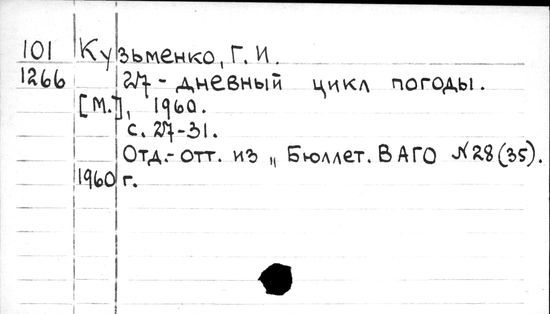 101 Кузьменко, Г. И.
1266 27-дневный цикл погоды.
[М.], 1960.
с. 27-31.
Отд.-отт. из „ Бюллет. ВАГО N28(35).
1960 г.